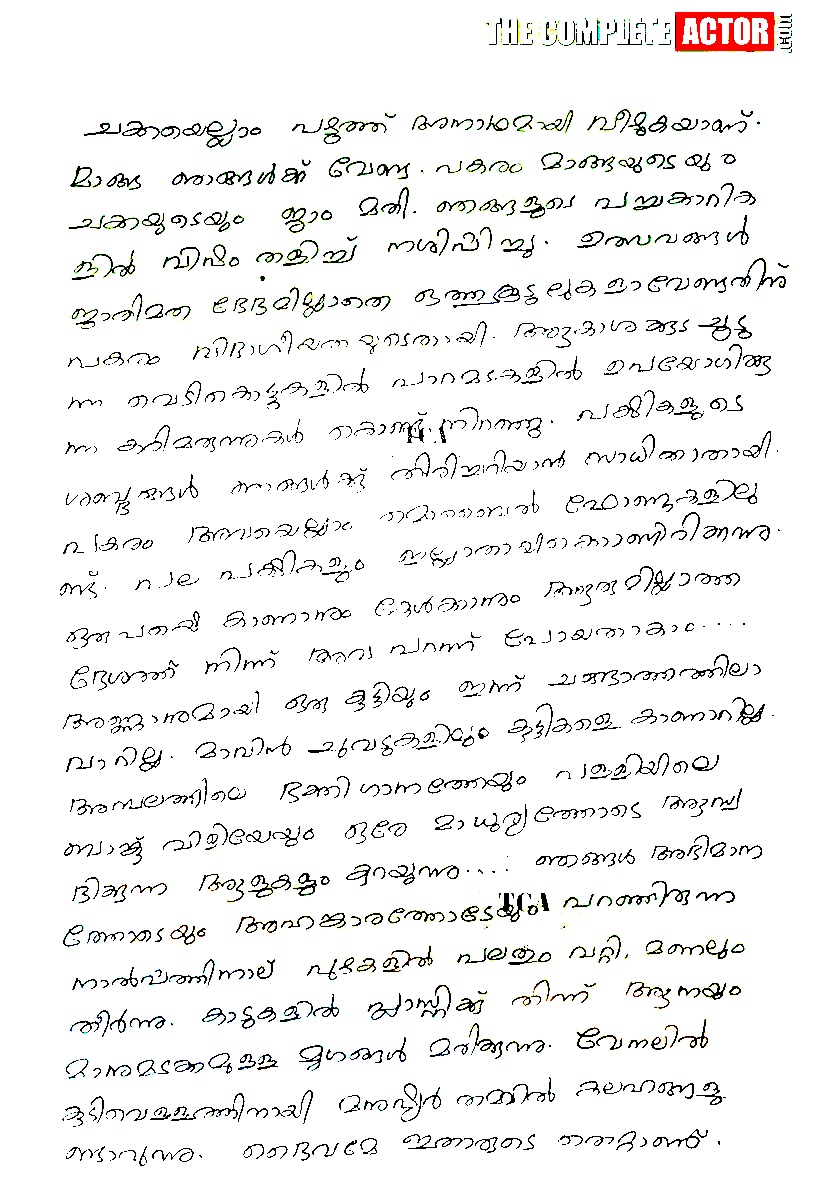 THE COMPLETE ACTOR .com
ചക്കയെല്ലാം പഴുത്ത് അനാഥമായി വീഴുകയാണ്.
മാങ്ങ ഞങ്ങൾക്ക് വേണ്ട. പകരം മാങ്ങയുടെയും
ചക്കയുടെയും ജാം മതി. ഞങ്ങളുടെ പച്ചക്കറിക
ളിൽ വിഷം തളിച്ച് നശിപ്പിച്ചു. ഉത്സവങ്ങൾ
ജാതിമത ഭേദമില്ലാതെ ഒത്തുകൂടലുകളാവേണ്ടതിന്
പകരം വിഭാഗീയതയുടെതായി. ആകാശക്കുട ചൂടു
ന്ന വെടികെട്ടുകളിൽ പാറമടകളിൽ ഉപയോഗിക്കു
ന്ന കരിമരുന്നുകൾ കൊണ്ട് നിറഞ്ഞു. പക്ഷികളുടെ
ശബ്ദങ്ങൾ ഞങ്ങൾക്ക് തിരിച്ചറിയാൻ സാധിക്കാതായി.
പകരം അവയെല്ലാം മൊബൈൽ ഫോണുകളിലു
ണ്ട്. പല പക്ഷികളും ഇല്ലാതായികൊണ്ടിരിക്കുന്നു.
ഒരുപക്ഷെ കാണാനും കേൾക്കാനും ആരുമില്ലാത്ത
ദേശത്ത് നിന്ന് അവ പറന്ന് പോയതാകാം....
അണ്ണാനുമായി ഒരു കുട്ടിയും ഇന്ന് ചങ്ങാത്തത്തിലാ
വാറില്ല. മാവിൻ ചുവടുകളിലും കുട്ടികളെ കാണാറില്ല.
അമ്പലത്തിലെ ഭക്തിഗാനത്തേയും പള്ളിയിലെ
ബാങ്ക് വിളിയേയും ഒരേ മാധുര്യത്തോടെ ആസ്വ
ദിക്കുന്ന ആളുകളും കുറയുന്നു.... ഞങ്ങൾ അഭിമാന
ത്തോടെയും അഹങ്കാരത്തോടേയും TCA പറഞ്ഞിരുന്ന
നാൽപ്പത്തിനാല് പുഴകളിൽ പലതും വറ്റി, മണലും
തീർന്നു. കാടുകളിൽ പ്ലാസ്റ്റിക്ക് തിന്ന് ആനയും
മാനുമടക്കമുള്ള മൃഗങ്ങൾ മരിക്കുന്നു. വേനലിൽ
കുടിവെള്ളത്തിനായി മനുഷ്യർ തമ്മിൽ കലഹങ്ങളു
ണ്ടാവുന്നു. ദൈവമേ ഇതാരുടെ തെറ്റാണ്.